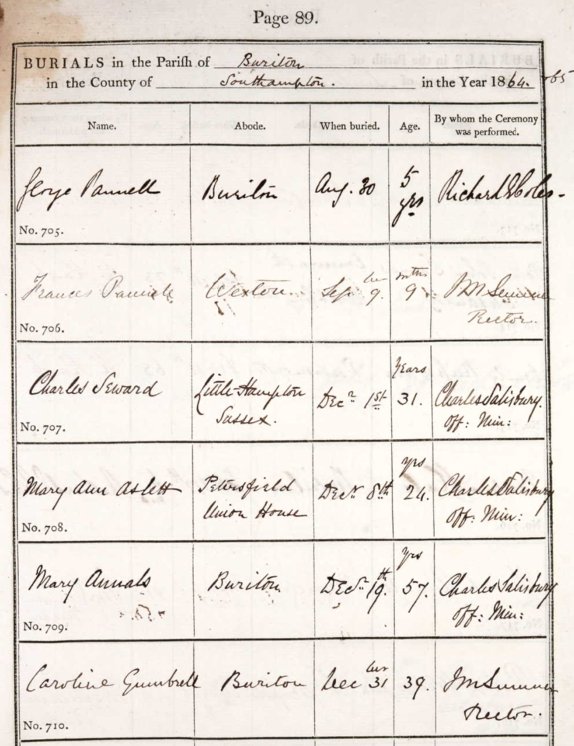 Page 89.
BURIALS in the Parish of Buriton
in the County of Southampton. in the Year 1864. -65
Name. Abode. When buried. Age. By whom the Ceremony was performed.
George Pannell Buriton Aug. 30 5 yrs Richard Coles
No. 705.
Frances Pannell Weston Sep. 9. mths 9
Rector.
No. 706.
Charles Seward Little-Hampton Sussex. Decr 1st Years 31. Charles Salisbury.
Off: Min:
No. 707.
Mary Ann Aslett Petersfield Union House Decr 8th yrs 24. Charles Salisbury
Off: Min:
No. 708.
Mary Annals Buriton Decr 19th yrs 57. Charles Salisbury
Off: Min:
No. 709.
Caroline Gumbrell Buriton Dec 31 39. JM Sumner
Rector.
No. 710.